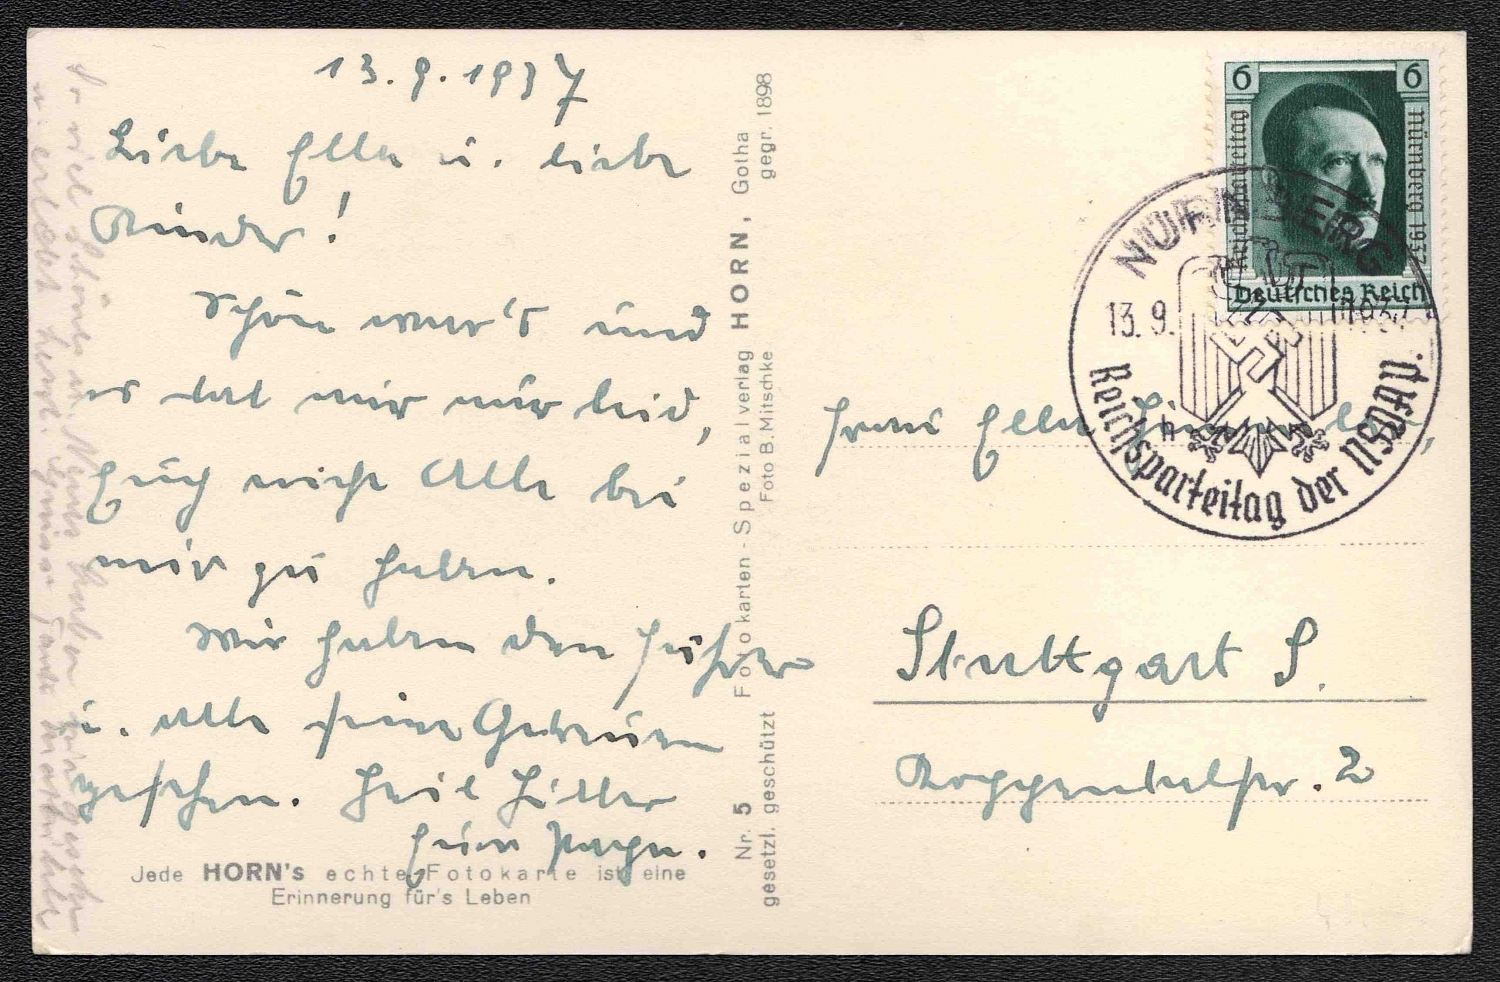 13.9.1937
Liebe Ella u. liebe
Kinder!
Schön war's und
es tat mir nur leid,
Euch nicht Alle bei
mir zu haben.
Wir haben den Führer
u. alle seine Getreuen
gesehen. Heil Hitler
Euer
So viel Schönes u. Neues haben wir gesehen
u. erlebt herzl. Grüsse
Jede HORN's echte Fotokarte ist eine
Erinnerung für's Leben
Nr. 5 Fotokarten-Spezialverlag HORN, Gotha
gesetzl. geschützt Foto B. Mitschke gegr. 1898
6 6
Reichsparteitag
Nürnberg 1937
Deutsches Reich
NÜRNBERG
13.9. 1937
h
Reichsparteitag der NSDAP.
Frau Ella
Stuttgart S.
2